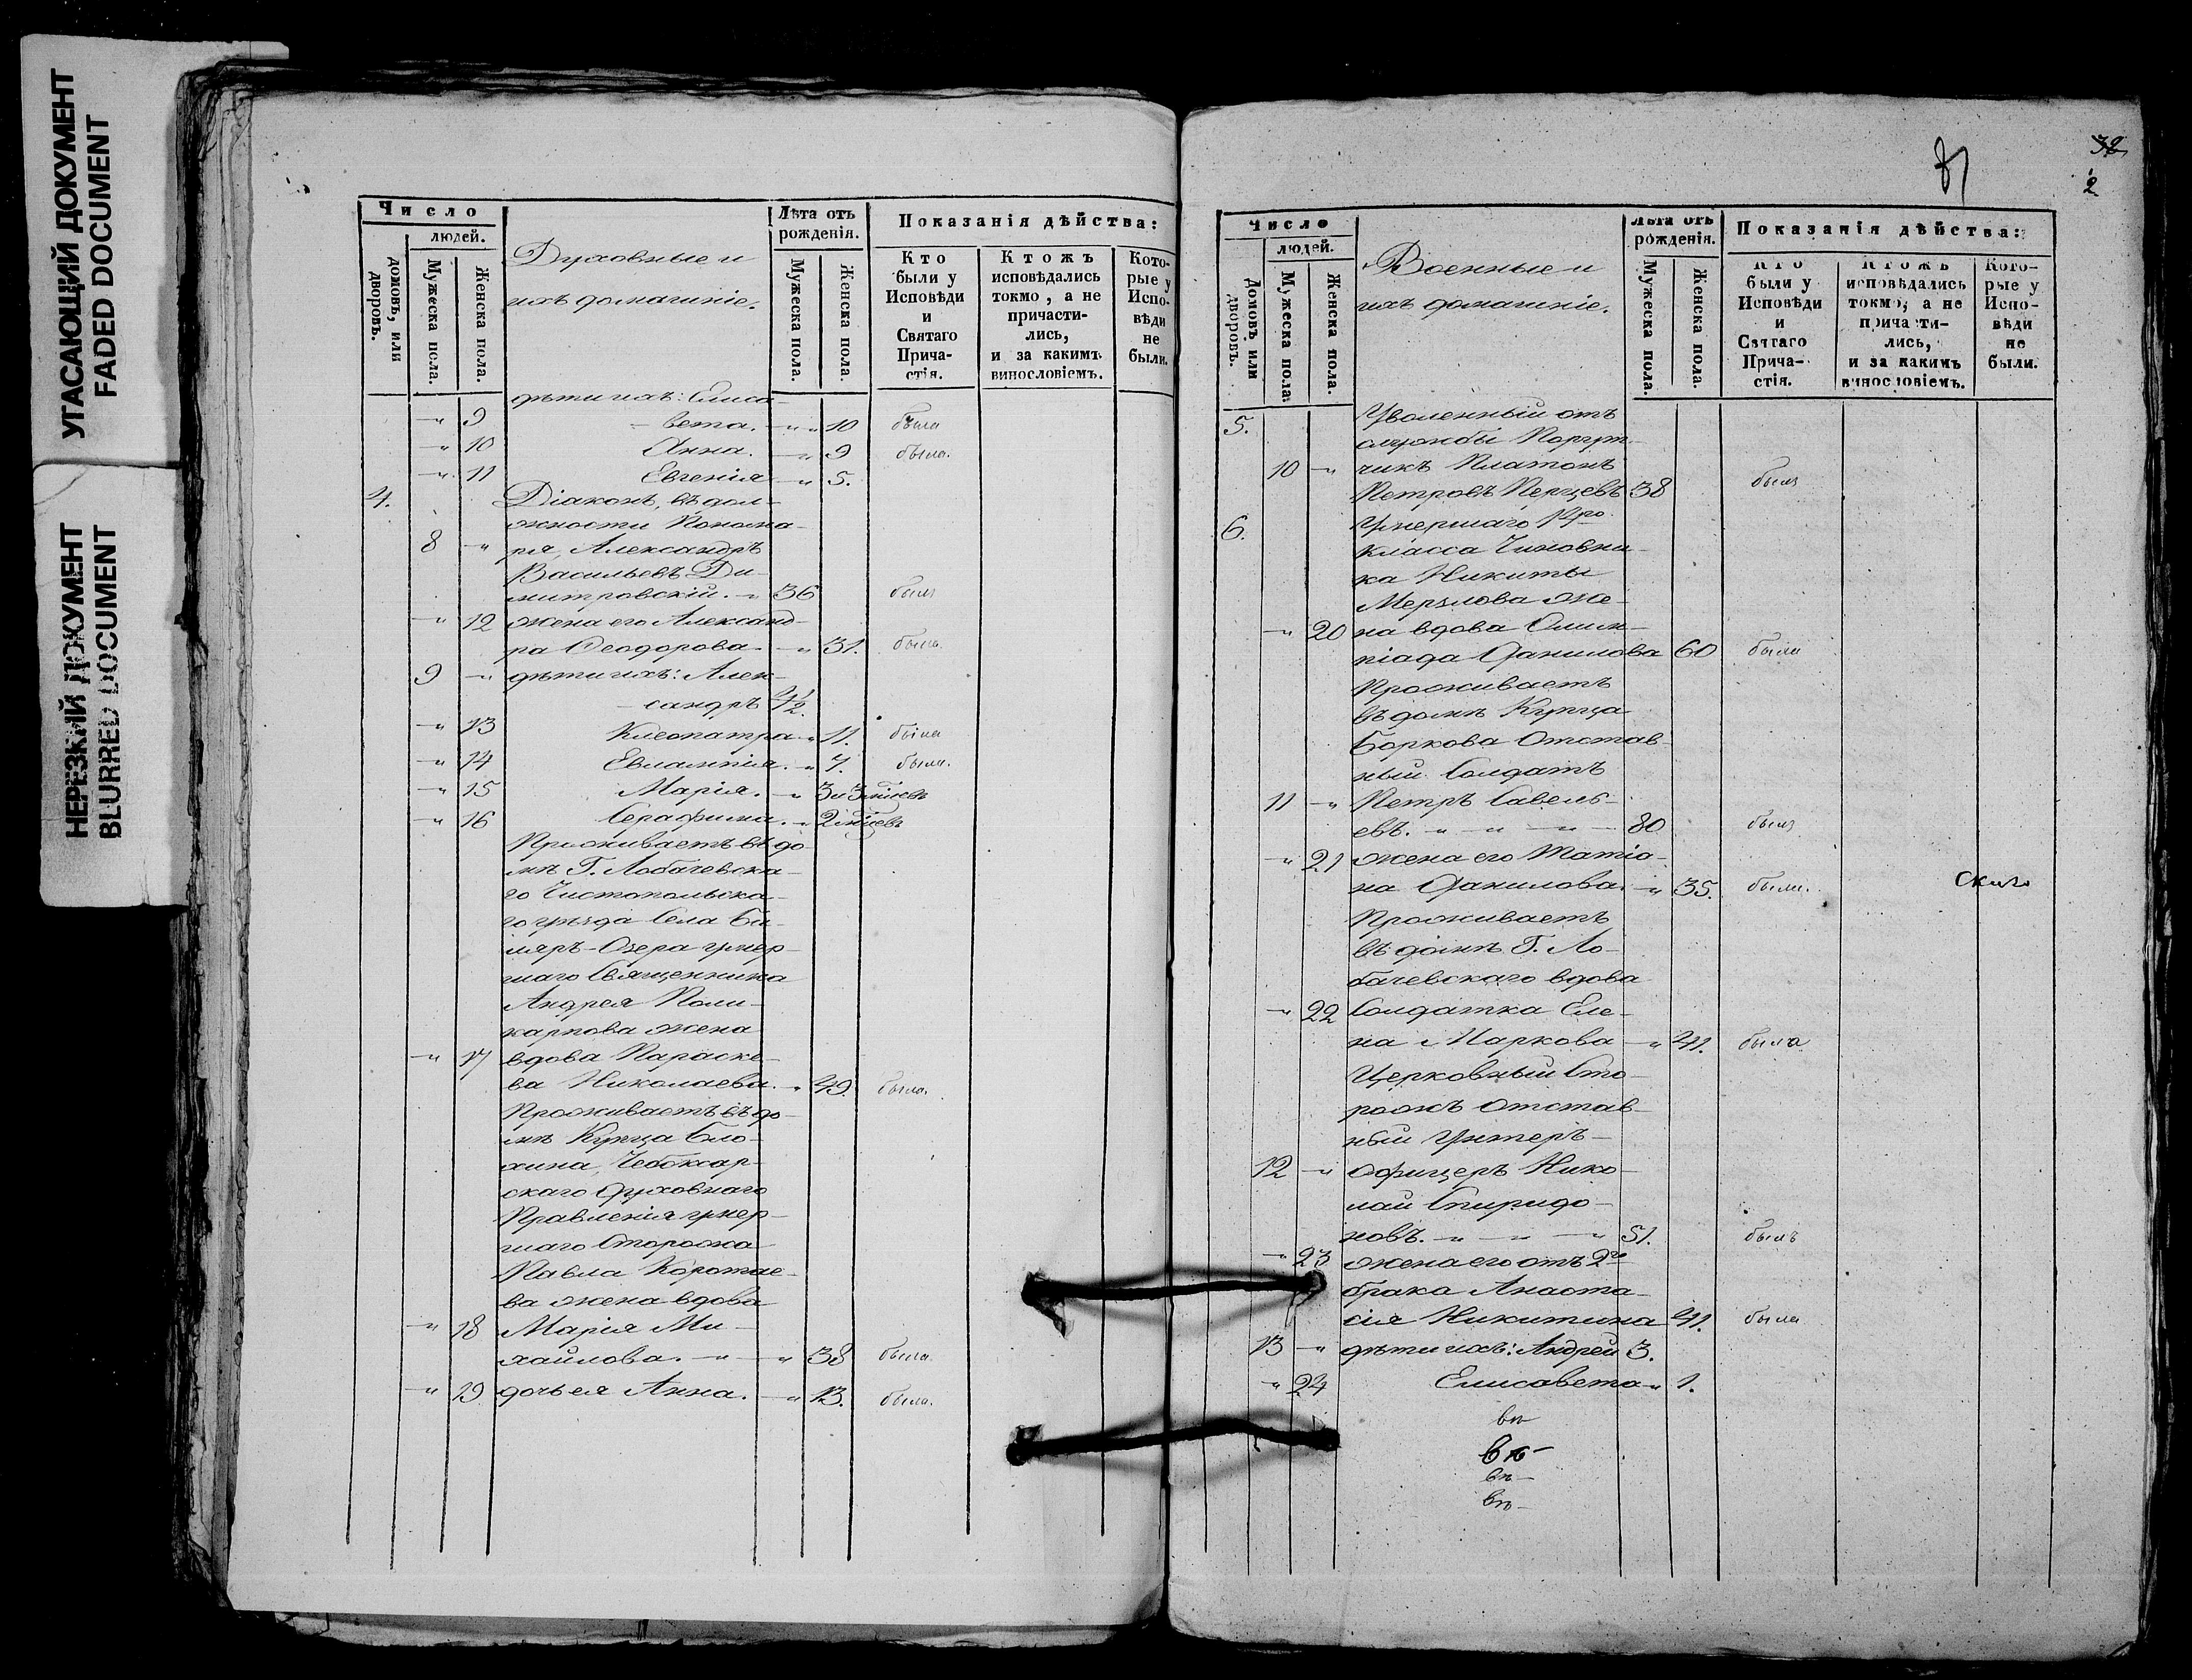 УГАСАЮЩИЙ ДОКУМЕНТ
FADED DOCUMENT
НЕРЕЗКИЙ ДОКУМЕНТ
BLURRED DOCUMENT
Число
людей.
домовъ, или дворовъ.
Мужеска пола.
Женска пола.
Духовные и
ихъ домашніе.
Лѣта отъ рожденія.
Мужеска пола.
Женска пола.
Показанія дѣйства:
Кто были у Исповѣди и Святаго Прича-стія.
Ктожъ исповѣдались токмо, а не причасти-лись, и за какимъ винословіемъ.
Кото-рые у Испо-вѣди не были.
дѣти ихъ: Елиса-
" 9 вета. " " 10 была
" 10 Анна. " 9 была.
" 11 Евгенія " 5.
4. Діаконъ, въ дол-
жности Понома-
8 " ря, Александръ
Васильевъ Ди-
митровскій. " 36 былъ
" 12 жена его Александ-
ра Ѳеодорова " 31. была
9 " дѣти ихъ: Алек-
сандръ 1/2
" 13 Клеопатра " 11. была
" 14 Евлампія. " 7. была.
" 15 Марія. " 3
" 16 Серафима. " 2
Проживаетъ въ до-
мѣ Г. Лобачевска-
го Чистопольска-
го уѣзда Села Би-
ляръ-Озера умер-
шаго Священника
Андрея Поли-
карпова жена
" 17 вдова Параске-
ва Николаева. " 49. была.
Проживаетъ въ до-
мѣ Купца Бло-
хина, Чебоксар-
скаго Духовнаго
Правленія умер-
шаго Сторожа
Павла Коротае-
ва жена вдова
" 18 Марія Ми-
хайлова. " " 38 была.
" 19 дочь ея Анна. " 13. была.
38
2
Число
людей.
Домовъ или дворовъ.
Мужеска пола.
Женска пола.
Военные и
ихъ домашніе.
Лѣта отъ рожденія.
Мужеска пола.
Женска пола.
Показанія дѣйства:
Кто были у Исповѣди и Святаго Прича-стія.
Ктожъ исповѣдались токмо, а не причасти-лись, и за какимъ винословіемъ.
Кото-рые у Испо-вѣди не были.
5. Уволенный отъ
службы Порут-
10 " чикъ Платонъ
Петровъ Перцевъ 38 былъ
6. Умершаго 14го
класса Чиновни-
ка Никиты
Мерзлова же-
" 20 на вдова Олим-
піада Данилова 60 была
Проживаетъ
въ домѣ Купца
Боркова Отстав-
ный Солдатъ
11 " Петръ Савель-
евъ. " " " 80 былъ
" 21 жена его Татіа-
на Данилова. " 35. была.
Проживаетъ
въ домѣ Г. Ло-
бачевскаго вдова
" 22 Солдатка Еле-
на Маркова " 41. была
Церковный Сто-
рожъ отстав-
ный Унтеръ-
12 " офицеръ Нико-
лай Спиридо-
новъ. " " " 51. былъ
" 23 жена его отъ 2го
брака Анаста-
сія Никитина 41. была
13 " дѣти ихъ: Андрей 3.
" 24 Елисавета " 1.